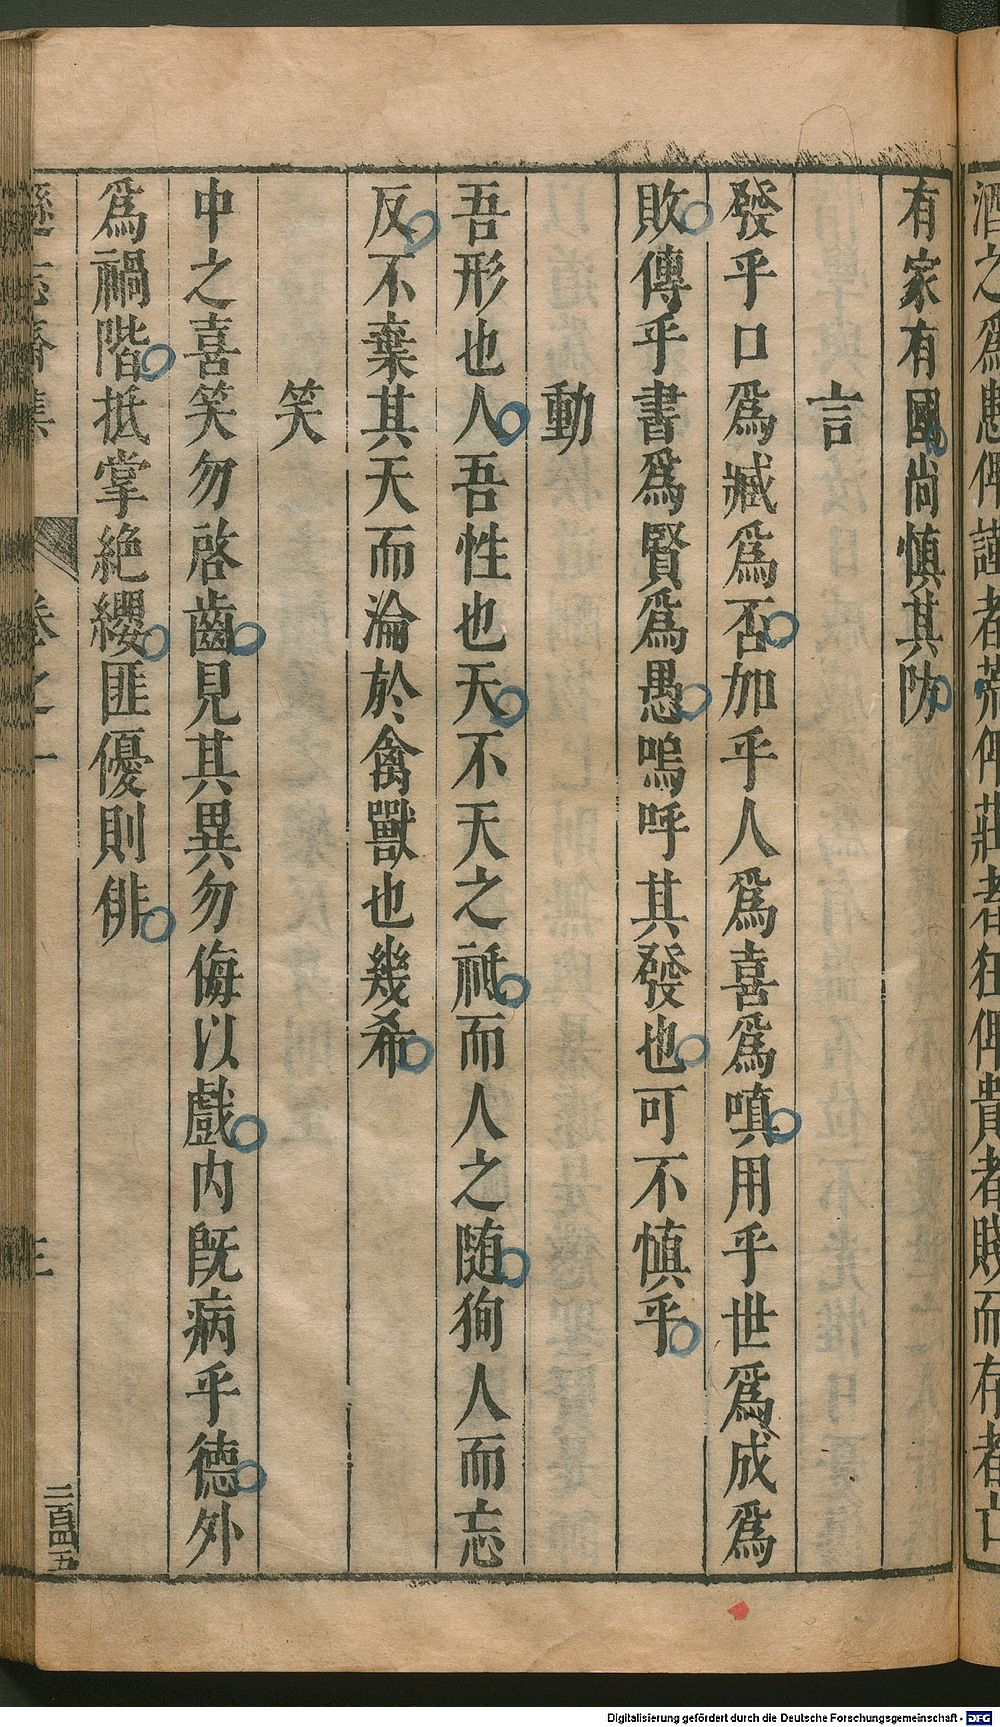 酒之爲患俾謹者荒俾莊者狂俾貴者賤而存者亡
有家有國尚慎其防
言
發乎口爲臧爲否加乎人爲喜爲嗔用乎世爲成爲
敗傳乎書爲賢爲愚嗚呼其發也可不慎乎
動
吾形也人吾性也天不天之祗而人之随狥人而忘
反不棄其天而淪於禽獸也幾希
笑
中之喜笑勿啓齒見其異勿侮以戲内既病乎德外
爲禍階抵掌絶纓匪優則俳
遜志齋集
卷之一
三
二百四五
Digitalisierung gefördert durch die Deutsche Forschungsgemeinschaft - DFG